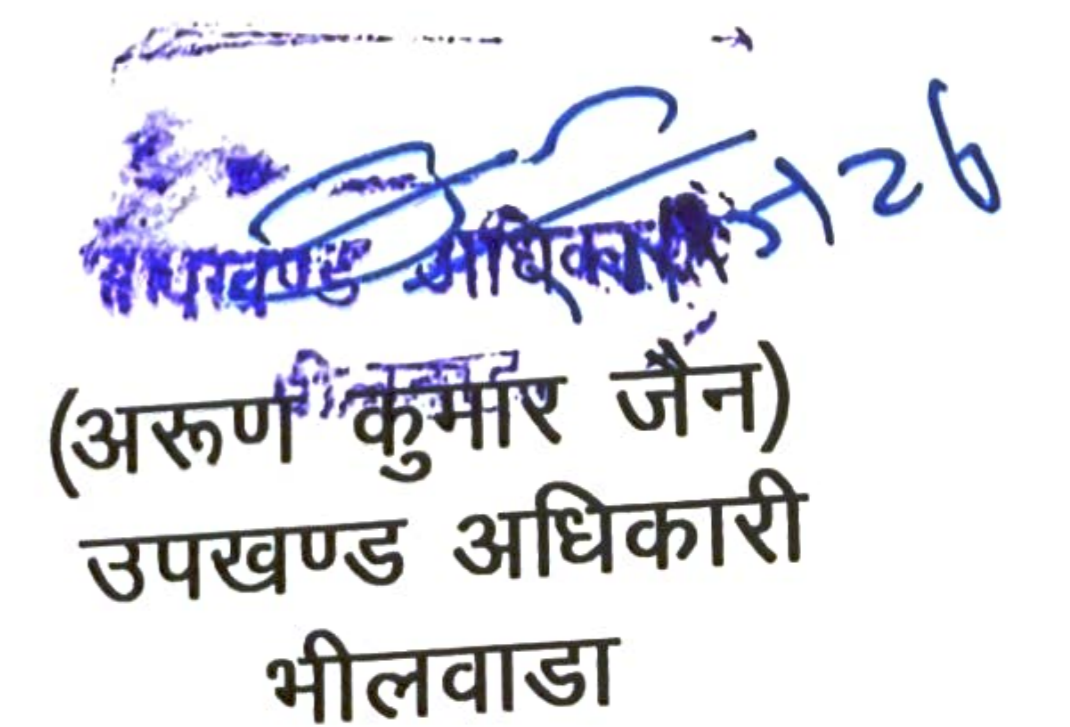 उपखण्ड अधिकारी
(अरूण कुमार जैन)
उपखण्ड अधिकारी
भीलवाडा